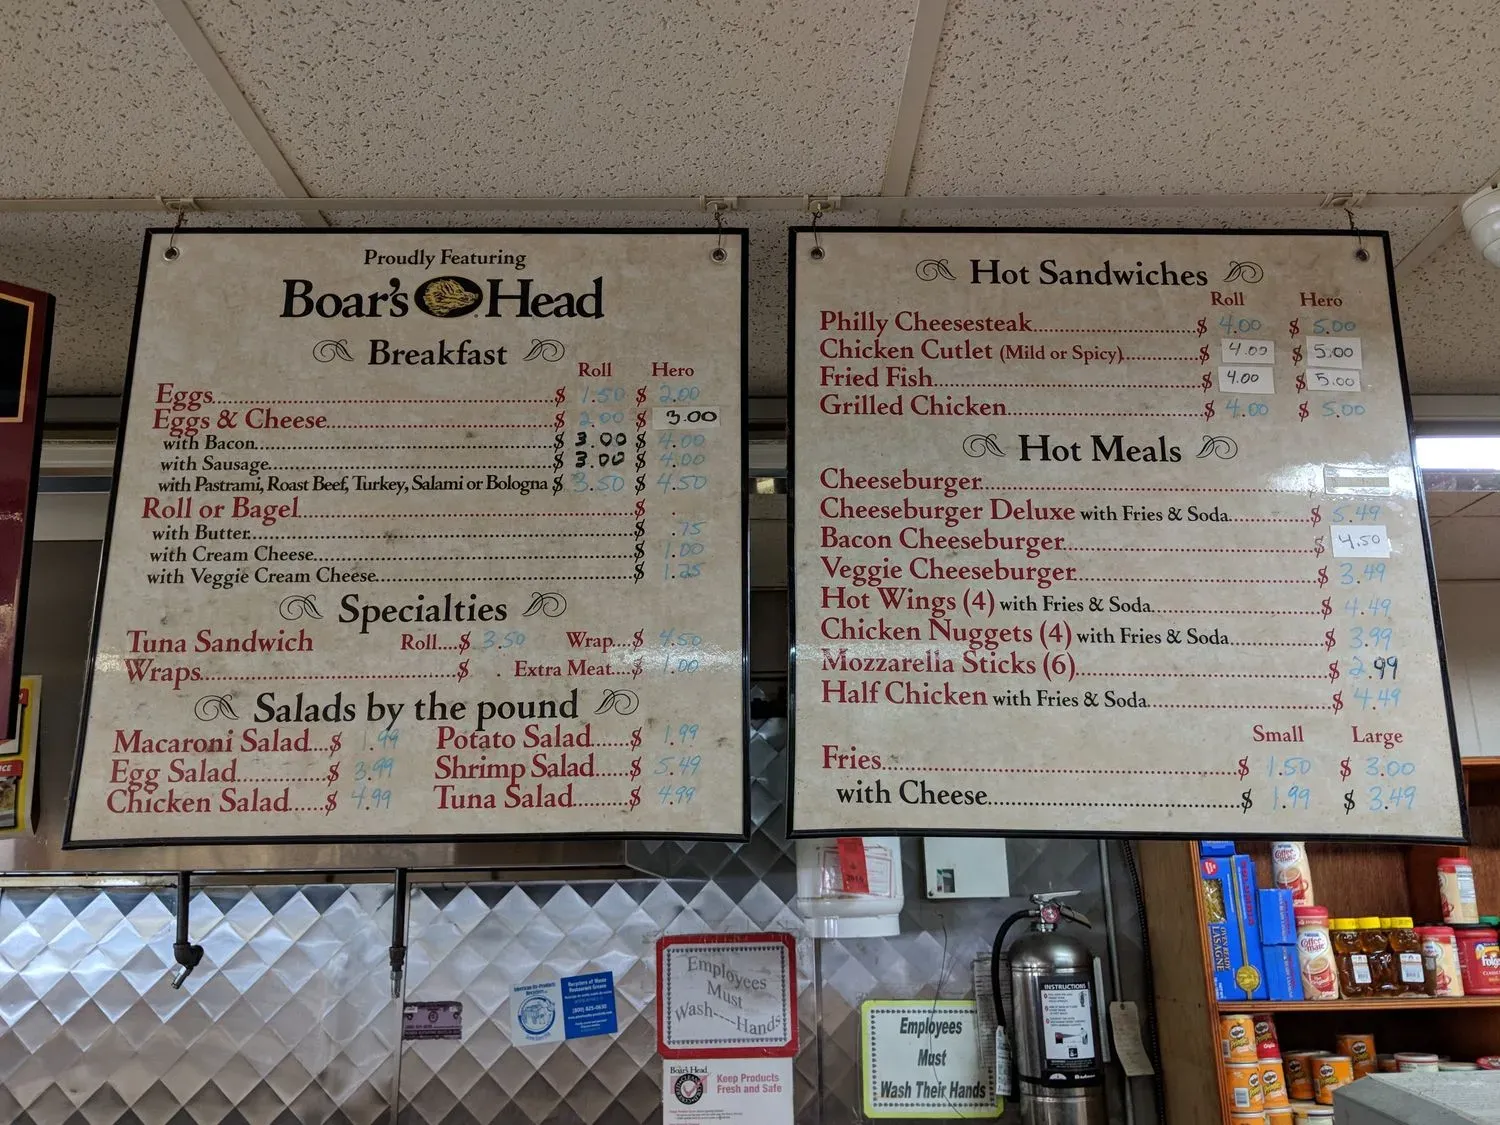 Proudly Featuring
Boar's Head
Breakfast
Roll Hero
Eggs $ 1.50 $ 2.00
Eggs & Cheese $ 2.00 $ 3.00
with Bacon $ 3.00 $ 4.00
with Sausage $ 3.00 $ 4.00
with Pastrami, Roast Beef, Turkey, Salami or Bologna $ 3.50 $ 4.50
Roll or Bagel $ .
with Butter $ .75
with Cream Cheese $ 1.00
with Veggie Cream Cheese $ 1.25
Specialties
Tuna Sandwich Roll....$ 3.50 Wrap....$ 4.50
Wraps $ . Extra Meat....$ 1.00
Salads by the pound
Macaroni Salad...$ 1.99 Potato Salad......$ 1.99
Egg Salad $ 3.99 Shrimp Salad.....$ 5.49
Chicken Salad.....$ 4.99 Tuna Salad $ 4.99
Hot Sandwiches
Roll Hero
Philly Cheesesteak $ 4.00 $ 5.00
Chicken Cutlet (Mild or Spicy) $ 4.00 $ 5.00
Fried Fish $ 4.00 $ 5.00
Grilled Chicken $ 4.00 $ 5.00
Hot Meals
Cheeseburger
Cheeseburger Deluxe with Fries & Soda $ 5.49
Bacon Cheeseburger $ 4.50
Veggie Cheeseburger $ 3.49
Hot Wings (4) with Fries & Soda $ 4.49
Chicken Nuggets (4) with Fries & Soda $ 3.99
Mozzarella Sticks (6) $ 2.99
Half Chicken with Fries & Soda $ 4.49
Small Large
Fries $ 1.50 $ 3.00
with Cheese $ 1.99 $ 3.49
Employees
Must
Wash----Hands
Boar's Head
Keep Products
Fresh and Safe
Employees
Must
Wash Their Hands
INSTRUCTIONS
(800) 825-0630
2019
OVEN READY
LASAGNE
Coffee mate
Coffee mate
Folgers